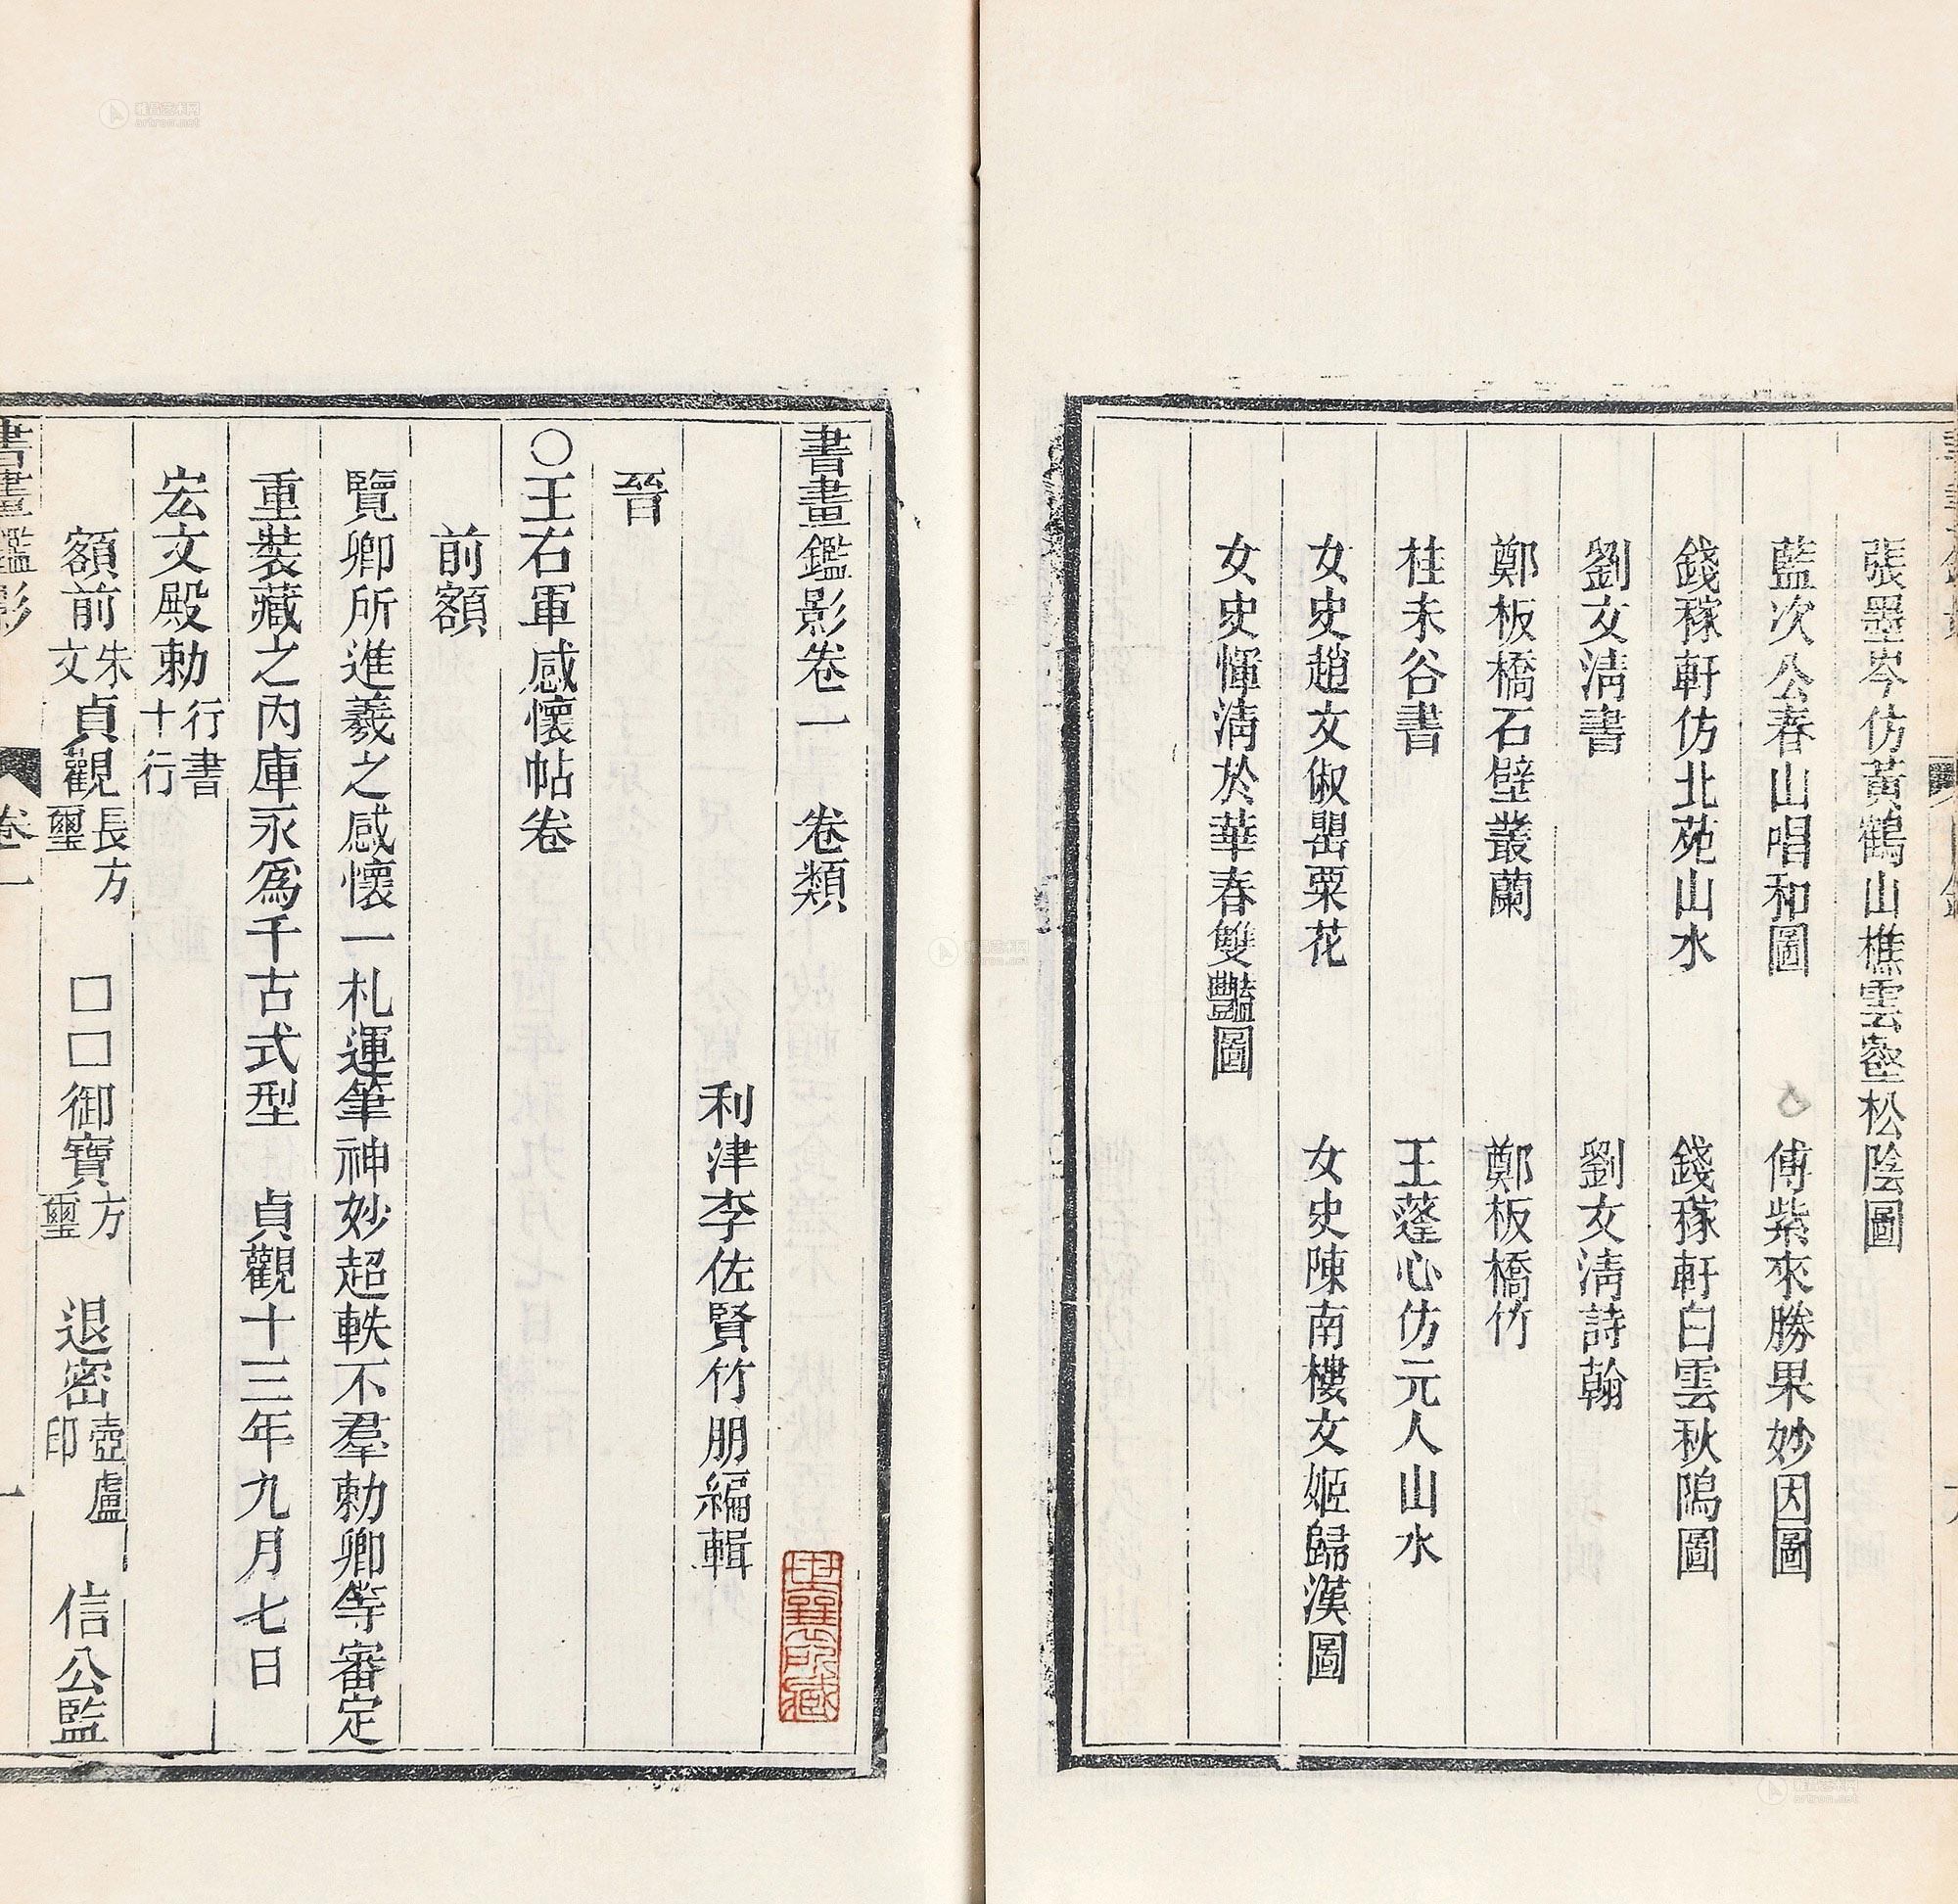 張墨岑仿黃鶴山樵雲壑松陰圖
藍次公春山唱和圖　傅紫來勝果妙因圖
錢稼軒仿北苑山水　錢稼軒白雲秋隖圖
劉文淸書　劉文淸詩翰
鄭板橋石壁叢蘭　鄭板橋竹
桂未谷書　王蓬心仿元人山水
女史趙文俶罌粟花　女史陳南樓文姬歸漢圖
女史惲淸於華春雙豔圖
書畫鑑影卷一　卷類
利津李佐賢竹朋編輯
晉
○王右軍感懷帖卷
前額
覽卿所進羲之感懷一札運筆神妙超軼不羣勅卿等審定
重裝藏之內庫永爲千古式型　貞觀十三年九月七日
宏文殿勅行書十行
額前朱文貞觀長方璽　□□御寶方璽　退密壺盧印　信公監
書畫鑑影　卷一　一